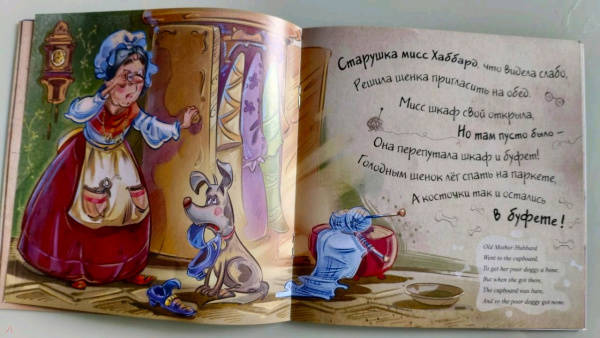 Старушка мисс Хаббард, что видела слабо,
Решила щенка пригласить на обед.
Мисс шкаф свой открыла,
Но там пусто было –
Она перепутала шкаф и буфет!
Голодным щенок лёг спать на паркете,
А косточки так и остались
в буфете!
Old Mother Hubbard
Went to the cupboard,
To get her poor doggy a bone,
But when she got there,
The cupboard was bare,
And so the poor doggy got none.